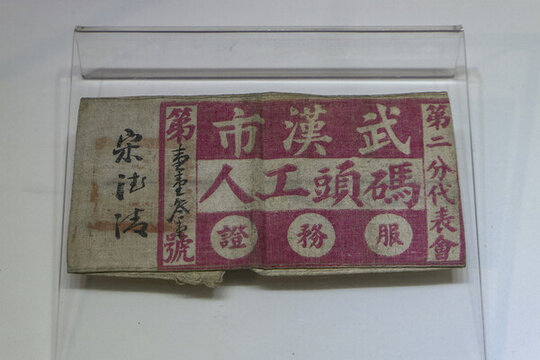 第二分代表會
武漢市
碼頭工人
服務證
第壹壹叁號
宋德清